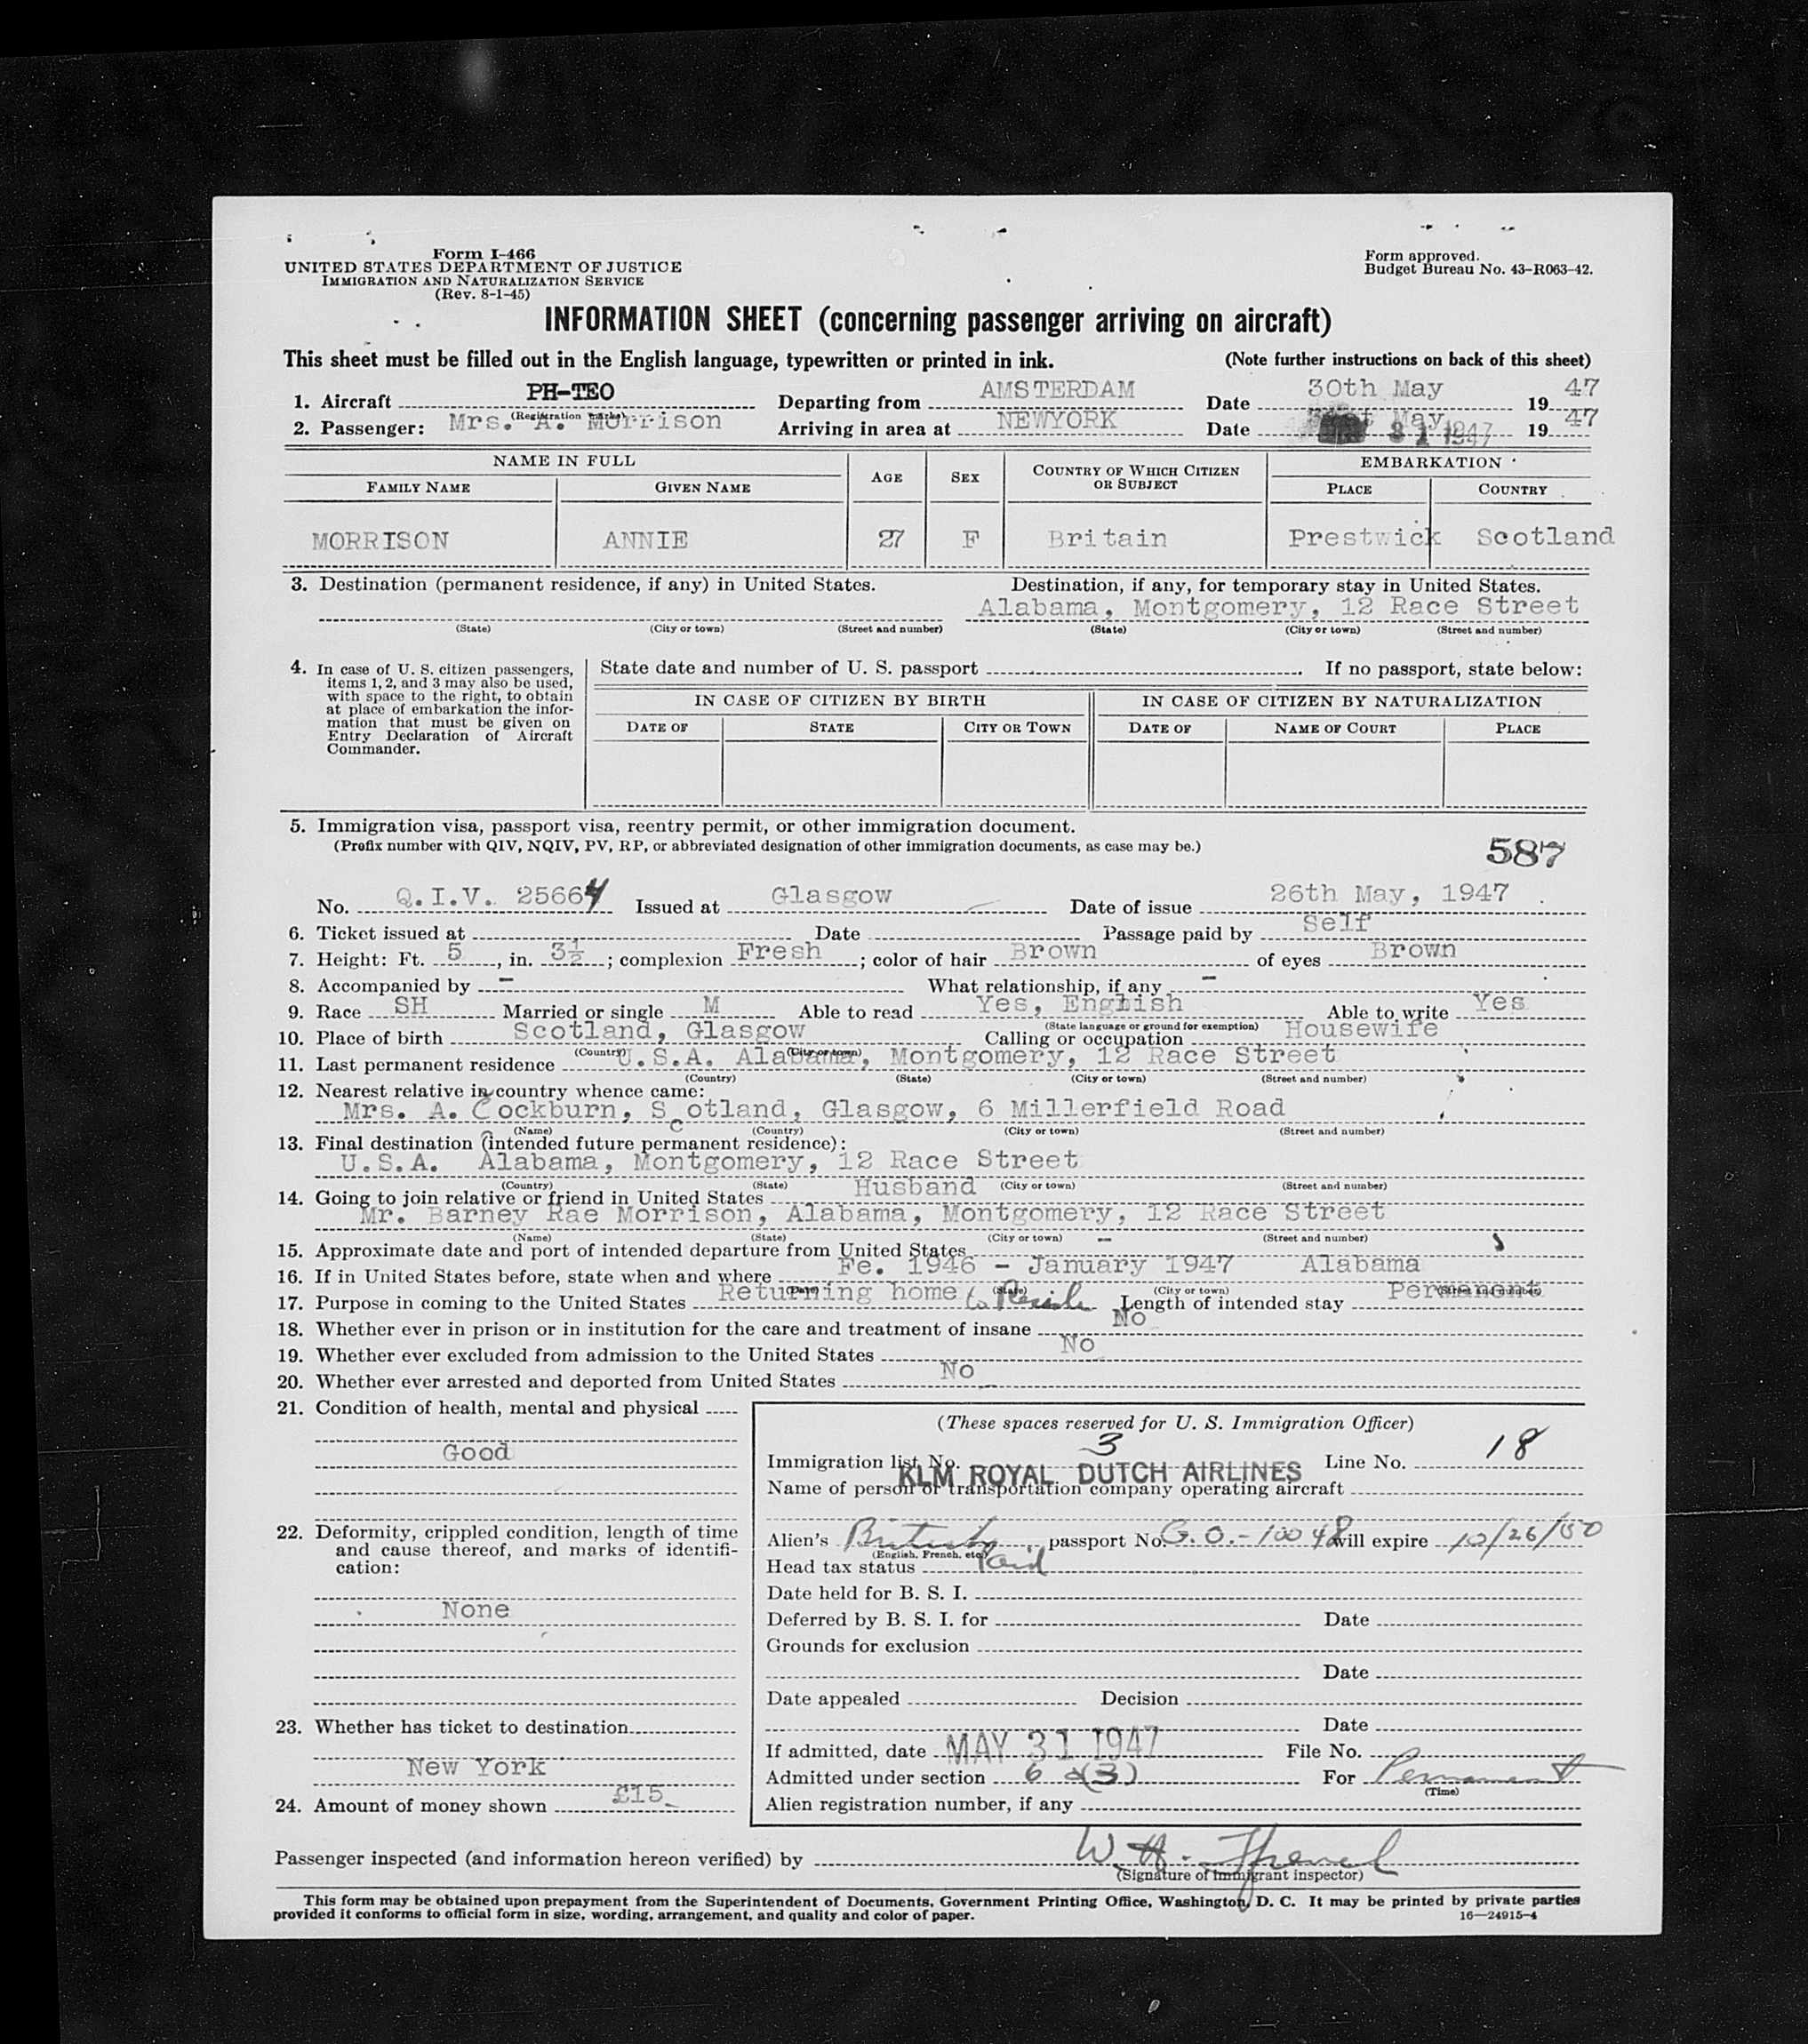 Form I-466
UNITED STATES DEPARTMENT OF JUSTICE
IMMIGRATION AND NATURALIZATION SERVICE
(Rev. 8-1-45)
Form approved.
Budget Bureau No. 43-R063-42.
INFORMATION SHEET (concerning passenger arriving on aircraft)
This sheet must be filled out in the English language, typewritten or printed in ink. (Note further instructions on back of this sheet)
1. Aircraft PH-TEO Departing from AMSTERDAM Date 30th May 1947
(Registration marks)
2. Passenger: Mrs. A. Morrison Arriving in area at NEWYORK Date May 31 1947 1947
NAME IN FULL AGE SEX COUNTRY OF WHICH CITIZEN OR SUBJECT EMBARKATION
FAMILY NAME GIVEN NAME PLACE COUNTRY
MORRISON ANNIE 27 F Britain Prestwick Scotland
3. Destination (permanent residence, if any) in United States. Destination, if any, for temporary stay in United States.
Alabama, Montgomery, 12 Race Street
(State) (City or town) (Street and number) (State) (City or town) (Street and number)
4. In case of U. S. citizen passengers, items 1, 2, and 3 may also be used, with space to the right, to obtain at place of embarkation the information that must be given on Entry Declaration of Aircraft Commander.
State date and number of U. S. passport If no passport, state below:
IN CASE OF CITIZEN BY BIRTH IN CASE OF CITIZEN BY NATURALIZATION
DATE OF STATE CITY OR TOWN DATE OF NAME OF COURT PLACE
5. Immigration visa, passport visa, reentry permit, or other immigration document.
(Prefix number with QIV, NQIV, PV, RP, or abbreviated designation of other immigration documents, as case may be.) 587
No. Q.I.V. 25664 Issued at Glasgow Date of issue 26th May, 1947
6. Ticket issued at Date Passage paid by Self
7. Height: Ft. 5, in. 3½; complexion Fresh; color of hair Brown of eyes Brown
8. Accompanied by - What relationship, if any -
9. Race SH Married or single M Able to read Yes, English Able to write Yes
(State language or ground for exemption)
10. Place of birth Scotland, Glasgow Calling or occupation Housewife
(Country) (City or town)
11. Last permanent residence U.S.A. Alabama, Montgomery, 12 Race Street
(Country) (State) (City or town) (Street and number)
12. Nearest relative in country whence came:
Mrs. A. Cockburn, Scotland, Glasgow, 6 Millerfield Road
(Name) (Country) (City or town) (Street and number)
13. Final destination (intended future permanent residence):
U.S.A. Alabama, Montgomery, 12 Race Street
(Country) (State) (City or town) (Street and number)
14. Going to join relative or friend in United States Husband
Mr. Barney Rae Morrison, Alabama, Montgomery, 12 Race Street
(Name) (State) (City or town) (Street and number)
15. Approximate date and port of intended departure from United States -
16. If in United States before, state when and where Fe. 1946 - January 1947 Alabama
(Date) (State) (City or town) (Street and number)
17. Purpose in coming to the United States Returning home to Reside Length of intended stay Permanent
18. Whether ever in prison or in institution for the care and treatment of insane No
19. Whether ever excluded from admission to the United States No
20. Whether ever arrested and deported from United States No
21. Condition of health, mental and physical
Good
22. Deformity, crippled condition, length of time and cause thereof, and marks of identification:
None
23. Whether has ticket to destination
New York
24. Amount of money shown £15
(These spaces reserved for U. S. Immigration Officer)
Immigration list No. 3 Line No. 18
KLM ROYAL DUTCH AIRLINES
Name of person or transportation company operating aircraft
Alien's British passport No. G.O.-10048 will expire 10/26/50
(English, French, etc.)
Head tax status Paid
Date held for B. S. I.
Deferred by B. S. I. for Date
Grounds for exclusion
Date
Date appealed Decision
Date
If admitted, date MAY 31 1947 File No.
Admitted under section 6 a(3) For Permanent
(Time)
Alien registration number, if any
Passenger inspected (and information hereon verified) by W. H.
(Signature of immigrant inspector)
This form may be obtained upon prepayment from the Superintendent of Documents, Government Printing Office, Washington, D. C. It may be printed by private parties
provided it conforms to official form in size, wording, arrangement, and quality and color of paper. 16—24915-4